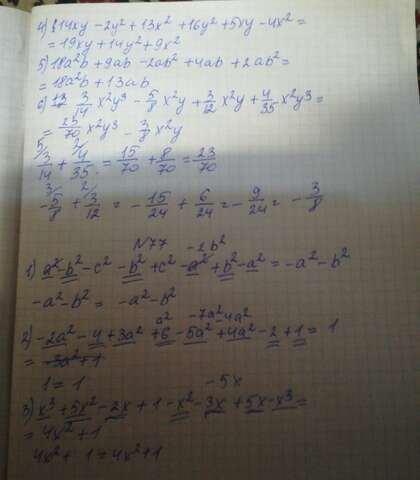 4) 14xy - 2y² + 13x² + 16y² + 5xy - 4x² =
= 19xy + 14y² + 9x²
5) 18a²b + 9ab - 2ab² + 4ab + 2ab² =
= 18a²b + 13ab
6) 3/14 x²y³ - 5/8 x²y + 3/12 x²y + 4/35 x²y³ =
= 23/70 x²y³ - 3/8 x²y
5/ 3/14 + 2/ 4/35 = 15/70 + 8/70 = 23/70
- 3/ 5/8 + 2/ 3/12 = - 15/24 + 6/24 = - 9/24 = - 3/8
N77 - 2b²
1) a² - b² - c² - b² + c² - a² + b² - a² = - a² - b²
- a² - b² = - a² - b²
a² - 7a² - 4a²
2) - 2a² - 4 + 3a² + 6 - 5a² + 4a² - 2 + 1 = 1
= - 3a² + 1
1 = 1
- 5x
3) x³ + 5x² - 2x + 1 - x² - 3x + 5x - x³ =
= 4x² + 1
4x² + 1 = 4x² + 1